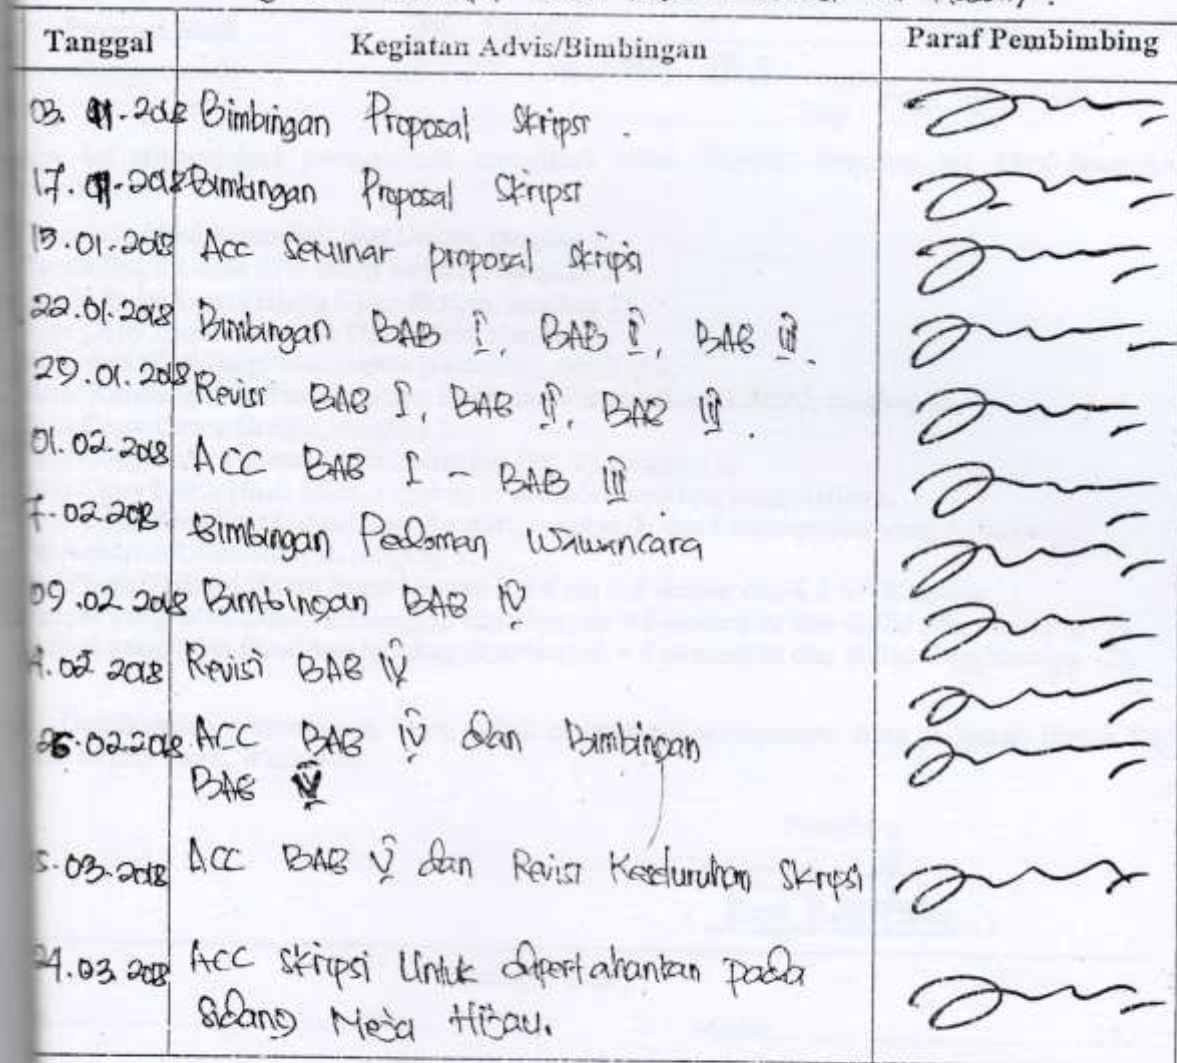 Tanggal Kegiatan Advis/Bimbingan Paraf Pembimbing
03. 01.2018 Bimbingan Proposal Skripsi.
17.01.2018 Bimbingan Proposal Skripsi
15.01.2018 Acc Seminar proposal skripsi
22.01.2018 Bimbingan BAB I, BAB II, BAB III.
29.01.2018 Revisi BAB I, BAB II, BAB III.
01.02.2018 ACC BAB I - BAB III
7.02.2018 Bimbingan Pedoman Wawancara
09.02.2018 Bimbingan BAB IV
02 2018 Revisi BAB IV
26.02.2018 ACC BAB IV dan Bimbingan
BAB V
5.03.2018 ACC BAB V dan Revisi Keseluruhan Skripsi
24.03.2018 ACC skripsi Untuk dipertahankan pada
Sidang Meja Hijau.